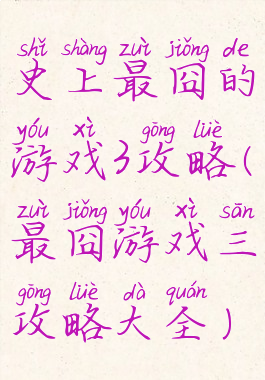 shǐ shàng zuì jiǒng de
史上最囧的
yóu xì gōng lüè
游戏3攻略(
zuì jiǒng yóu xì sān
最囧游戏三
gōng lüè dà quán
攻略大全)